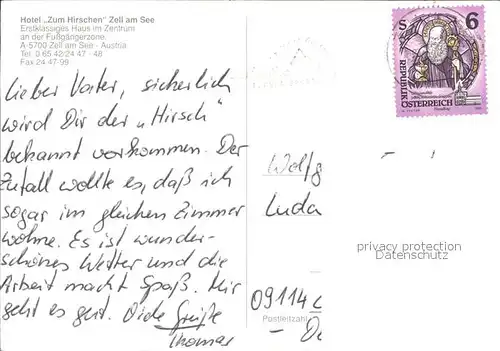 Hotel „Zum Hirschen" Zell am See
Erstklassiges Haus im Zentrum
an der Fußgängerzone.
A-5700 Zell am See - Austria
Tel. 0 65 42/24 47 - 48
Fax 24 47-99
Lieber Vater, sicherlich
wird Dir der „Hirsch"
bekannt vorkommen. Der
Zufall wollte es, daß ich
sogar im gleichen Zimmer
wohne. Es ist wunder-
schönes Wetter und die
Arbeit macht Spaß. Mir
geht es gut. Viele Grüße
Thomas
S 6
REPUBLIK
ÖSTERREICH
Wolfg
Luda
privacy protection
Datenschutz
09114
Postleitzahl
- De